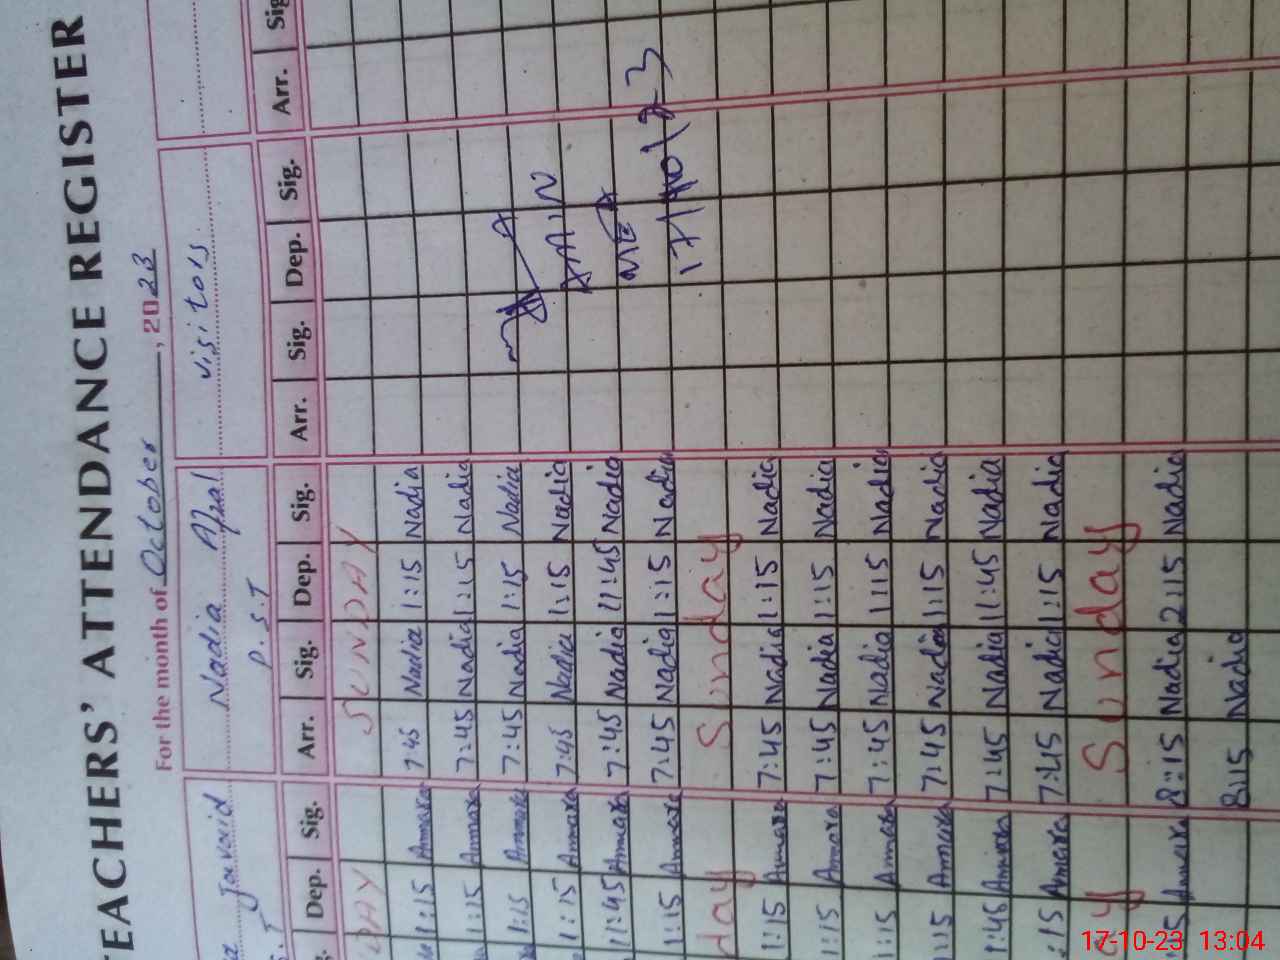 TEACHERS' ATTENDANCE REGISTER
For the month of October, 2023
Javaid Nadia Afzal visitors
P.S.T
Dep. Sig. Arr. Sig. Dep. Sig. Arr. Sig. Dep. Sig. Arr. Sig.
DAY SUNDAY
1:15 Ammara 7:45 Nadia 1:15 Nadia
1:15 Ammara 7:45 Nadia 1:15 Nadia
1:15 Ammara 7:45 Nadia 1:15 Nadia
1:15 Ammara 7:45 Nadia 1:15 Nadia
11:45 Ammara 7:45 Nadia 11:45 Nadia
1:15 Ammara 7:45 Nadia 1:15 Nadia
day Sunday
1:15 Ammara 7:45 Nadia 1:15 Nadia
1:15 Ammara 7:45 Nadia 1:15 Nadia
1:15 Ammara 7:45 Nadia 1:15 Nadia
1:15 Ammara 7:45 Nadia 1:15 Nadia
1:45 Ammara 7:45 Nadia 11:45 Nadia
:15 Ammara 7:45 Nadia 1:15 Nadia
ay Sunday
:15 Ammara 8:15 Nadia 2:15 Nadia
8:15 Nadia
MEA
17/10/23
17-10-23 13:04